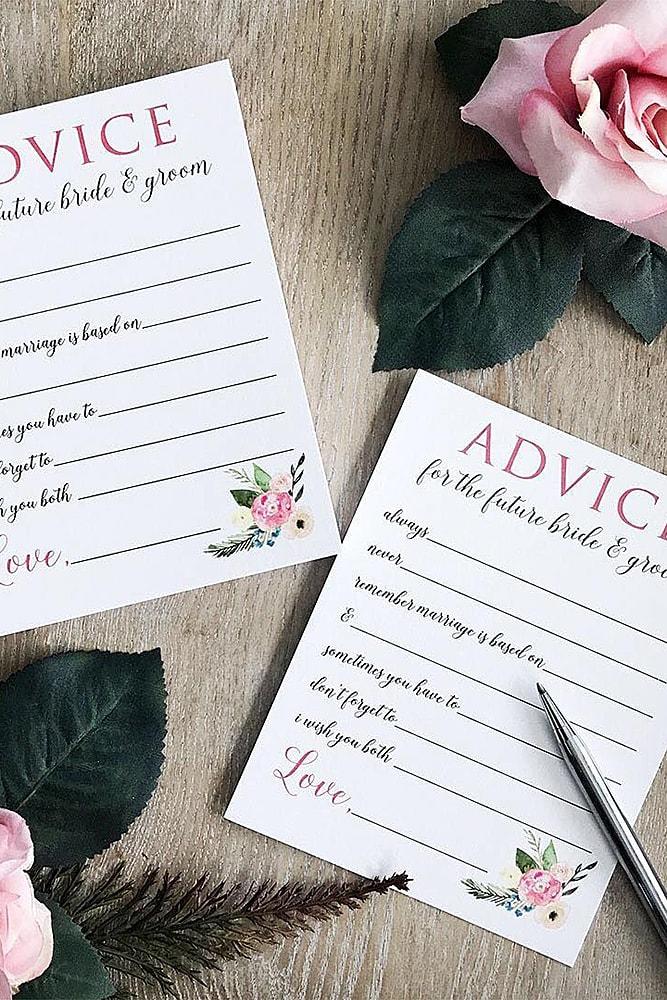 DVICE
future bride & groom
marriage is based on
you have to
forget to
you both
Love,
ADVIC
for the future bride & groo
always
never
remember marriage is based on
&
sometimes you have to
don't forget to
i wish you both
Love,